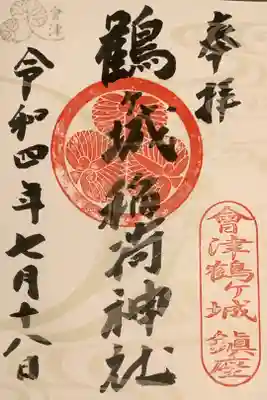 奉拝
會津鶴ヶ城鎮座
鶴ヶ城稲荷神社
令和四年七月十八日
會津